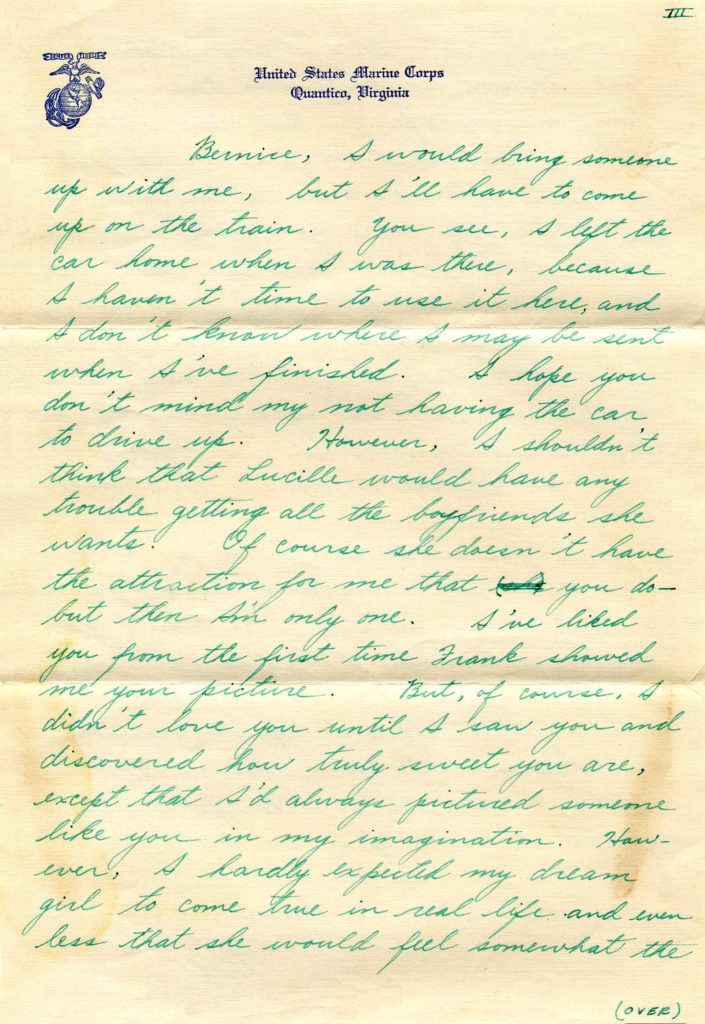 III
United States Marine Corps
Quantico, Virginia
Bernice, I would bring someone
up with me, but I'll have to come
up on the train. You see, I left the
car home when I was there, because
I haven't time to use it here, and
I don't know where I may be sent
when I've finished. I hope you
don't mind my not having the car
to drive up. However, I shouldn't
think that Lucille would have any
trouble getting all the boyfriends she
wants. Of course she doesn't have
the attraction for me that you do—
but then I'm only one. I've liked
you from the first time Frank showed
me your picture. But, of course, I
didn't love you until I saw you and
discovered how truly sweet you are,
except that I'd always pictured someone
like you in my imagination. How-
ever, I hardly expected my dream
girl to come true in real life and even
less that she would feel somewhat the
(OVER)